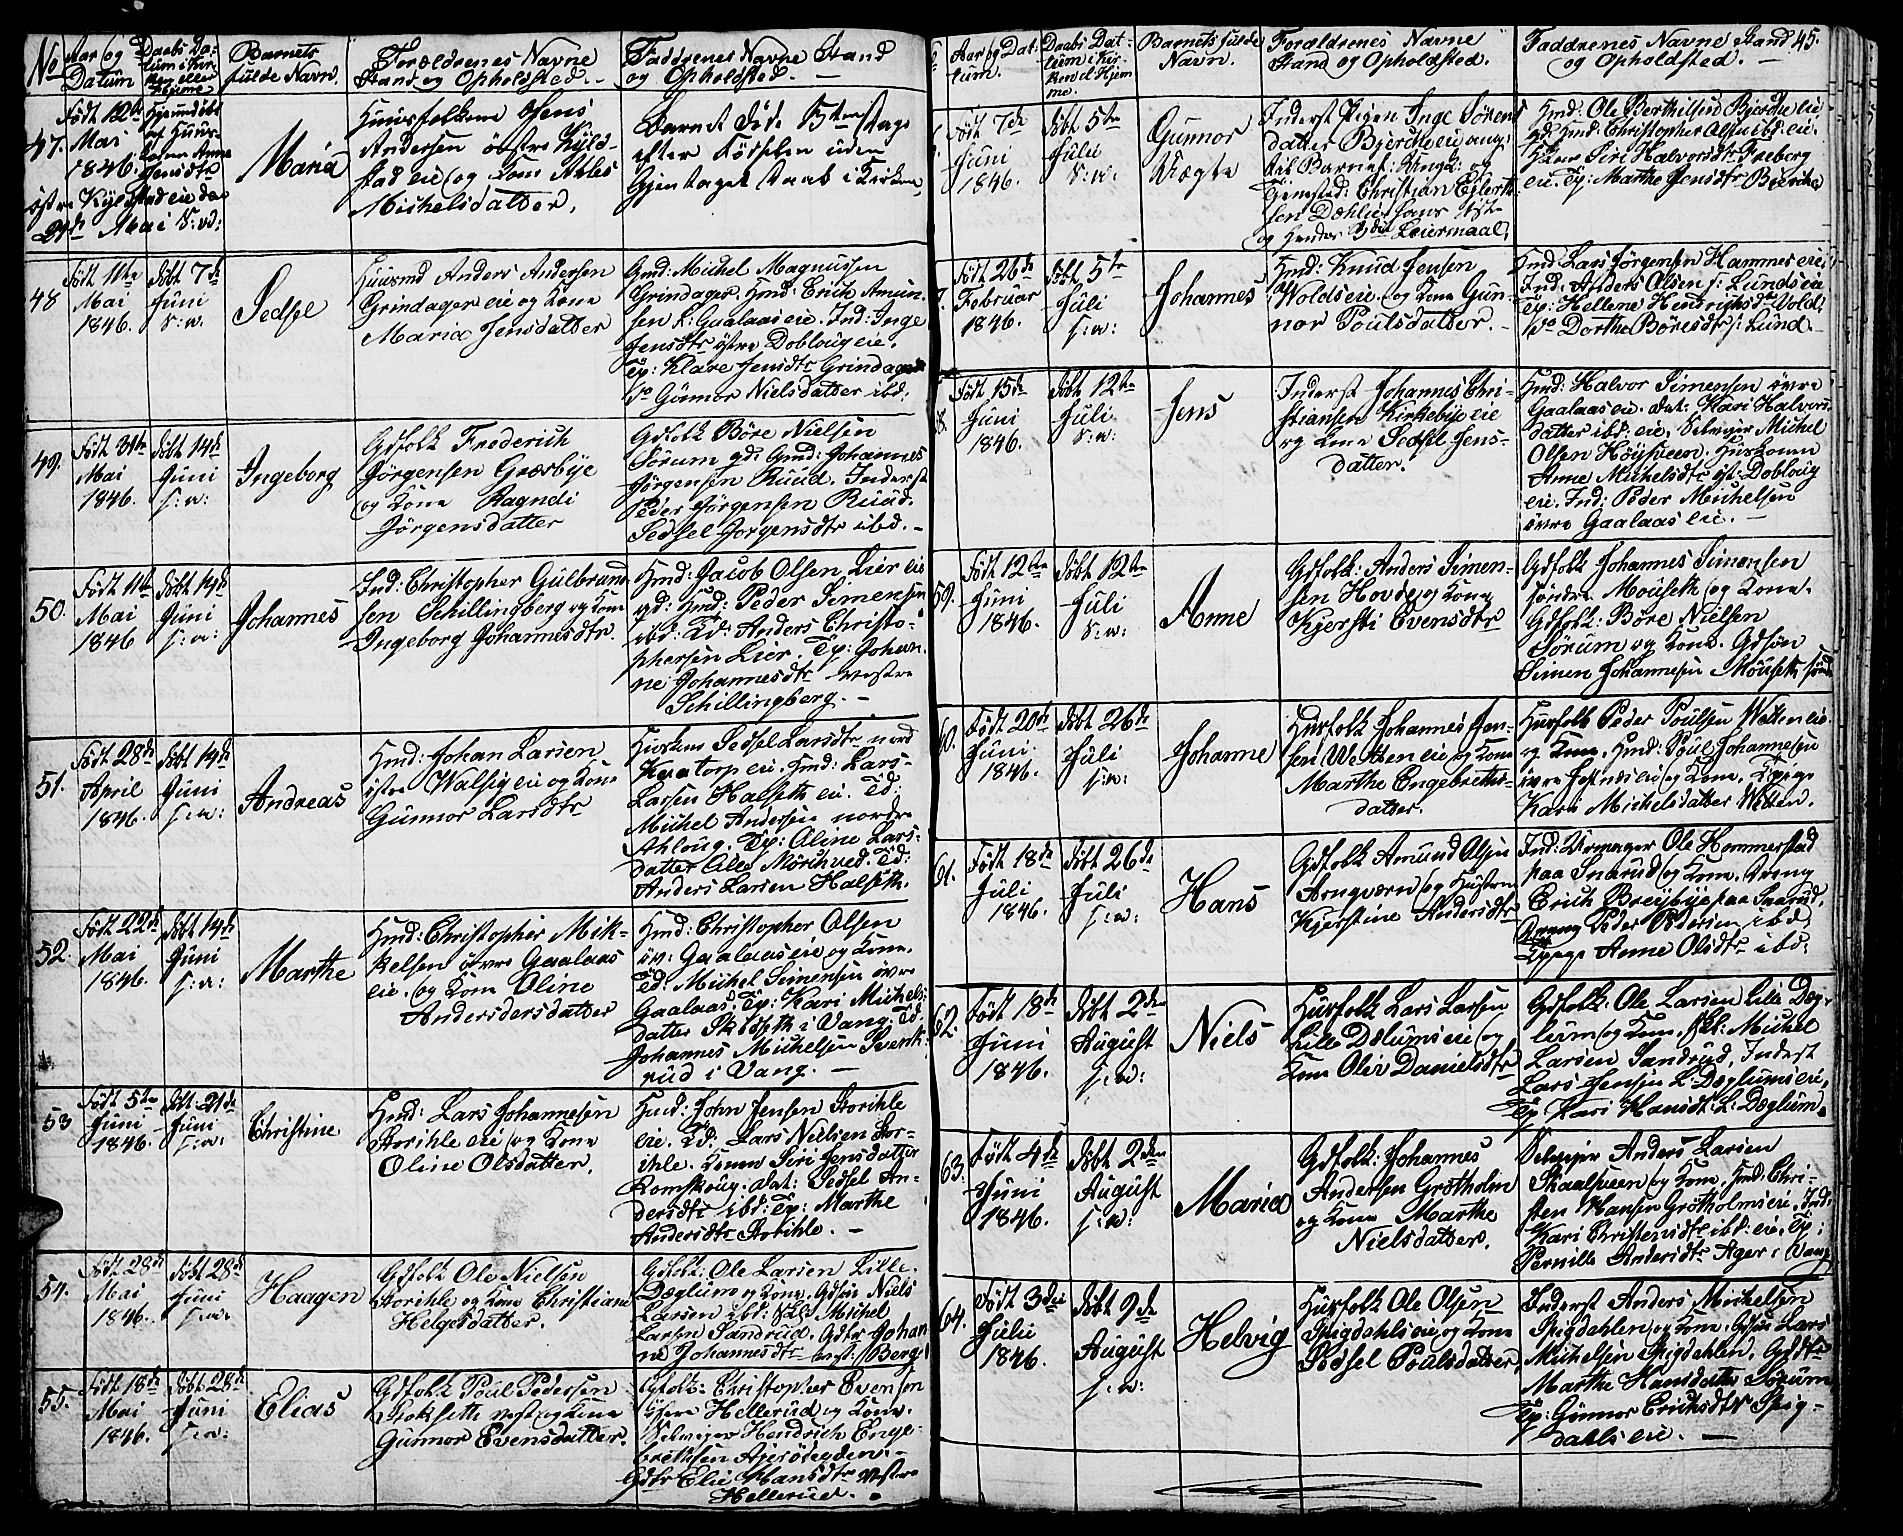 No
Aar og
Datum
Daabs Da-
tum i Kir-
ken eller
Hjemme
Barnets
fulde Navn.
Forældrenes Navne
Stand og Opholdsted.
Faddrenes Navne Stand
og Opholdsted. —
47.
Født 12te
Mai
1846.
Hjemdøbt
Maria
Andersen østre Kyld-
stad eie og Kone
Michelsdatter.
Barnet døde
efter Fødselen uden
Gjentaget Daab i Kirken
48
Født 11te
Mai
1846.
Døbt 7de
Juni
S: w.
Sedsel
Huusmd Anders Andersen
Grindager eie og Kone
Maria Jensdatter
Gmd: Michel Magnussen
Grindager. Hmd: Erich Amun-
sen L: Gaalaas eie. Ind: Inge
Jensdtr østre Doblougeie.
Tp: Klare Jensdtr Grindager
Gunnor Nielsdatter ibd.
49.
Født 31te
Mai
1846.
Døbt 14de
Juni
S: w:
Ingeborg
Gdfolk Frederich
Jørgensen Græsbye
og Kone Ragndi
Jørgensdatter
Gdfolk Børe Nielsen
Sørum gd: Gmd: Johannes
Jørgensen Ruud. Inderst
Peder Jørgensen Ruud.
Sedsel Jorgensdtr ibd. —
50.
Født 11te
Mai
1846
Døbt 14de
Juni
S: w:
Johannes
Ind: Christopher Gulbrand
sen Schillingberg og Kone
Ingeborg Johannesdtr.
Hmd: Jacob Olsen Lier eie
gd: Hmd: Peder Simensen
ibd: Td: Anders Christo-
phersen Lier. Tp: Johan-
ne Johannesdtr Vestre
Schillingberg. —
51.
Født 28de
April
1846.
Døbt 14de
Juni
S: w:
Andreas
Hmd: Johan Larsen
østre Walsig eie og Kone
Gunnor Larsdtr
Sedsel Larsdtr nord
Hmd: Lars
Larsen Halseth eie. Td:
Michel Andersen nordre
Ahloug. Tp: Oline Lars-
datter Mørkved. Td:
Anders Larsen Halseth.
52.
Født 22de
Mai
1846.
Døbt 14de
Juni
S: w:
Marthe
Hmd: Christopher Mik-
kelsen övre Gaalaas
eie. og Kone Oline
Andersdersdatter
Hmd: Christopher Olsen
öv: Gaalaas eie og Kone.
Td. Michel Simensen övre
Gaalaas. Tp: Kari Michels-
datter i Vang. Td:
Johannes Michelsen Svenk-
rud i Vang. —
53
Født 5te
Juni
1846.
Døbt 21de
Juni
S: w:
Christine
Hmd: Lars Johannesen
Storihle eie og Kone
Oline Olsdatter.
Hmd: John Jensen Storihle
eie. Td: Lars Nielsen Stor-
ihle. Konen Siri Jensdatter
Romskoug: dat: Sedsel An-
dersdtr ibd: Tp: Marthe
Andersdtr Storihle. —
54.
Født 28de
Mai
1846.
Døbt 28de
Juni
S: w:
Haagen
Gdfolk Ole Nielsen
Storihle og Kone Christiane
Helgesdatter.
Gdfolk: Ole Larsen Lille-
Døglum og Kone. Gdsøn Niels
Larsen ibd: Michel
Larsen Sandrud. Gdtr Johan
ne Johannesdtr Berg
55.
Født 18de
Mai
1846.
Døbt 28de
Juni
S: w:
Elias
Gdfolk Poul Pedersen
Stokseth vest og Kone
Gunnor Evensdatter.
Gdfolk: Christopher Evensen
Hellerud og Kone.
Selveier Hendrich Enge-
brethsen
Gdtr Elie Hansdtr Vestre
Hellerud.
Aar og Da-
tum.
Daabs Dat-
tum i Kir-
ken el Hjem-
me.
Barnets fulde
Navn.
Forældrenes Navne
Stand og Opholdsted.
Faddrenes Navne Stand
og Opholdsted. —
45.
Født 7de
Juni
1846.
Døbt 5te
Juli
S: w:
Gunnor
Inderst Pigen Inge Sørens
datter Bjerche eie
til Barnef: Ungk: og
Tjenestd: Christian
sen Dæhlie hans 1ste
og hendes Leiermaal.
Hmd: Ole Berthelsen Bjerche eie
gd: Hmd: Christopher Olsen ibd: eie.
Siri Halvorsdtr Freberg
eie. Tp: Marthe Jensdtr Bjerche
Født 26de
Februar
1846.
Døbt 5te
Juli
S: w:
Johannes
Hmd: Knud Jensen
Woldseie og Kone Gun-
nor Poulsdatter. —
Hmd Lars Jørgensen Hammer eie,
Ind: Anders Olsen s: Lunds eie
Tp: Hellene Hendrichsdtr Vold.
Dorthe Böresdtr s: Lund. —
Født 15de
Juni
1846.
Døbt 12te
Juli
S: w:
Jens
Inderst Johannes Chri-
stiansen Kirkebye eie
og Kone Sedsel Jens-
datter.
Hmd: Halvor Simensen övre
Gaalaas eie. dat: Kari Halvors
datter ibd: eie. Selveier Michel
Olsen Høisveen. Huuskonen
Anne Michelsdtr öst: Doblug
eie. Ind: Peder Michelsen
övre Gaalaas eie. —
59.
Født 12te
Juni
1846.
Døbt 12te
Juli
S: w:
Anne
Gdfolk: Anders Simen-
sen Hovde og Kone
Kjersti Evensdtr
Gdfolk Johannes Simensen
søndre Mouseth og Kone.
Gdfolk: Børe Nielsen
Sørum og Kone. Gdsøn
Simen Johannesen Mouseth sønd
60.
Født 20de
Juni
1846.
Døbt 26de
Juli
S: w:
Johanne
Husfolk Johannes Jen-
sen Wetten eie og Kone
Marthe Engebreths-
datter.
Husfolk Peder Poulsen Wetten eie
og Kone. Hmd: Poul Johannesen
eie og Kone. Tp: Pige
Kari Michelsdatter Wetten.
61.
Født 18de
Juli
1846.
Døbt 26de
Juli
S: w:
Hans
Gdfolk Amund Olsen
Arnqværn og Hustru
Kjerstine Andersdtr
Ind: Urmager Ole Hommerstad
paa Snarud og Kone. Dreng
Erich Breijbye paa Snarud,
Dreng Peder Pedersen ibd
Tp: Pige Anne Olsdtr ibd:
62.
Født 18de
Juni
1846.
Døbt 2den
August
S: w:
Niels
Husfolk Lars Larsen
Lille Dølumseie og
Kone Oliv Danielsdtr
Gdfolk: Ole Larsen Lille Døg-
lum og Kone. Michel
Larsen Sandrud, Inderst
Lars Jensen L: Døglumseie,
Tp Kari Hansdt: L: Døglum.
63.
Født 4de
Juni
1846.
Døbt 2den
August
S: w:
Maria
Gdfolk: Johannes
Andersen Grøtholm
og Kone Marthe
Nielsdatter.
Selveier Anders Larsen
Skaalsveen og Kone. Hmd: Chri-
sten Hansen Grøtholmseie, Ind:
Kari Christensdtr ibd: eie. Tp:
Pernille Andersdtr Ager i Vang
64.
Født 3die
Juli
1846.
Døbt 9de
August
S: w:
Helvig
Husfolk Ole Olsen
Spigdahlseie og Kone
Sedsel Poulsdatter.
Inderst Anders Michelsen
Spigdahlen og Kone. Gdsøn Lars
Michelsen Spigdahlen, Gdtr
Marthe Hansdatter Sörum
Tp: Gunnor Erichsdtr Spig-
dahls eie. —